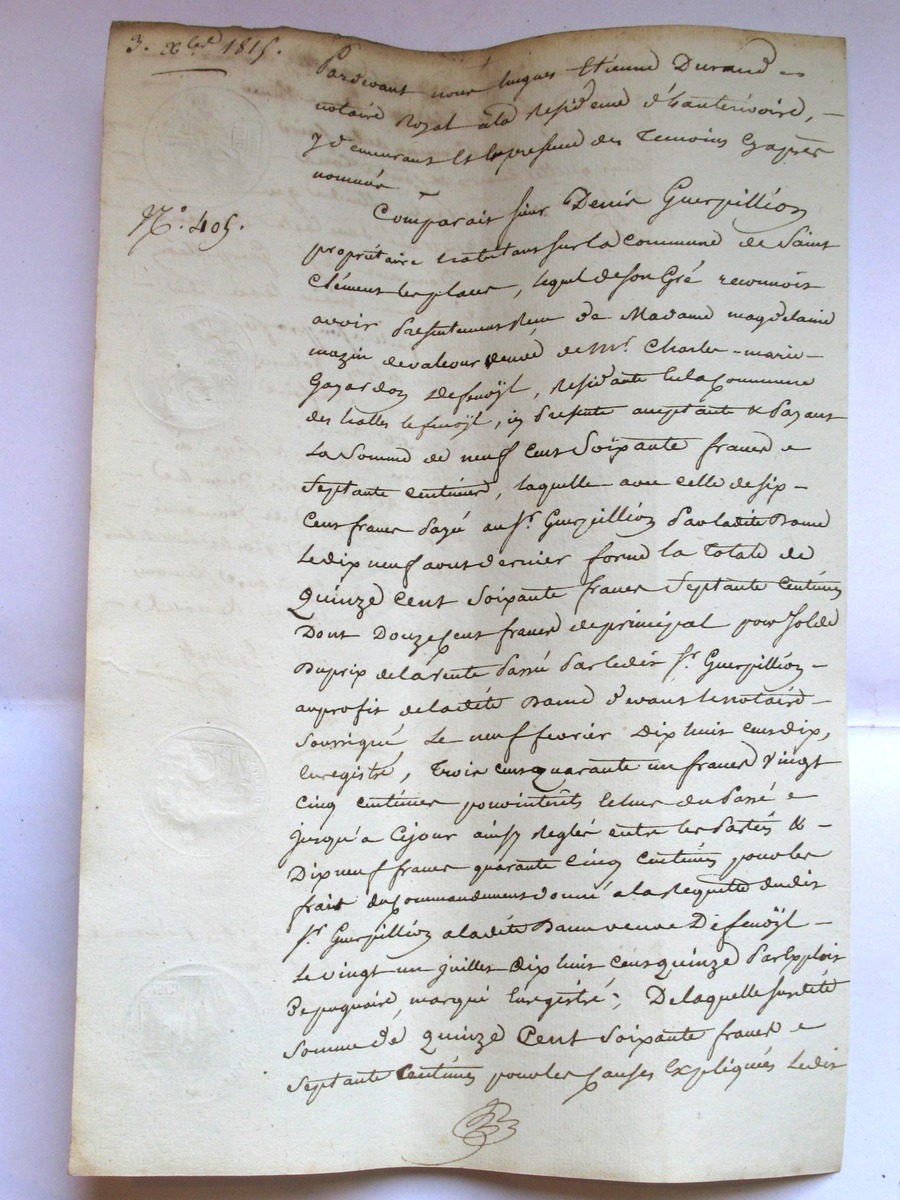 3. Xbre 1815.
Pardevant nous hugues Etienne Durand
notaire Royal à la Residence d'hauterivoire,
y demeurant et en presence des Temoins cy après
nommés
N.° 405.
Comparait sieur Denis Guerpillion
propriétaire habitant sur la Commune de Saint
Clément les places, lequel de son Gré reconnoit
avoir Presentement Reçu de Madame magdelaine
mazin devaleour veuve de Mr. Charles-marie
Gayardon Defenoÿl, residante en la Commune
des halles le fenoÿl, ici Presente acceptante & Payant
La Somme de neuf cent Soixante francs e
Septante centimes, laquelle avec celle de six
Cent francs Payé au Sr. Guerpillion Par ladite Dame
Le dix neuf aout dernier forme la Totale de
Quinze cent Soixante francs Septante Centimes
Dont Douze Cent francs de principal pour Solde
Du prix de la vente Passé Par ledit Sr. Guerpillion
au profit de la dite Dame Devant le notaire
Soussigné Le neuf fevrier Dix huit cent dix,
enregistré, Trois cent quarante un francs Vingt
Cinq centimes pour intérêts echus du Passé e
jusqu'a Cejour ainsy Reglés entre les Parties &
Dix neuf francs quarante Cinq Centimes pour les
frais du Commandement Donné a la Requete dudit
Sr. Guerpillion a la dite Dame veuve Defenoÿl
Le vingt un juillet dix huit cent quinze Par Exploit
De marqué Enregistré, De laquelle susdite
Somme de quinze Cent Soixante francs e
Septante Centimes pour les Causes Expliquées Ledit